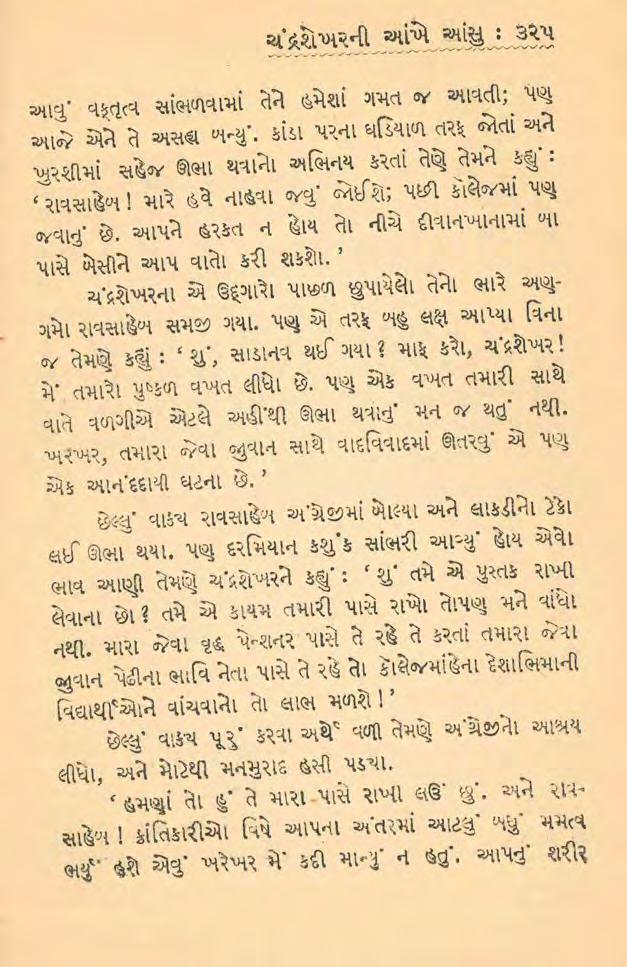 ચંદ્રશેખરની આંખે આંસુ : ૩૨૫
આવું વક્તૃત્વ સાંભળવામાં તેને હમેશાં ગમત જ આવતી; પણ
આજે એને તે અસહ્ય બન્યું. કાંડા પરના ઘડિયાળ તરફ જોતાં અને
ખુરશીમાં સહેજ ઊભા થવાનો અભિનય કરતાં તેણે તેમને કહ્યું :
‘રાવસાહેબ! મારે હવે નાહવા જવું જોઈશે; પછી કૉલેજમાં પણ
જવાનું છે. આપને હરકત ન હોય તો નીચે દીવાનખાનામાં બા
પાસે બેસીને આપ વાતો કરી શકશો.’
ચંદ્રશેખરના એ ઉદ્દગારો પાછળ છુપાયેલો તેનો ભારે અણ-
ગમો રાવસાહેબ સમજી ગયા. પણ એ તરફ બહુ લક્ષ આપ્યા વિના
જ તેમણે કહ્યું : ‘શું, સાડાનવ થઈ ગયા? માફ કરો, ચંદ્રશેખર!
મેં તમારો પુષ્કળ વખત લીધો છે. પણ એક વખત તમારી સાથે
વાતે વળગીએ એટલે અહીંથી ઊભા થવાનું મન જ થતું નથી.
ખરેખર, તમારા જેવા જુવાન સાથે વાદવિવાદમાં ઊતરવું એ પણ
એક આનંદદાયી ઘટના છે.’
છેલ્લું વાક્ય રાવસાહેબ અંગ્રેજીમાં બોલ્યા અને લાકડીનો ટેકો
લઈ ઊભા થયા. પણ દરમિયાન કશુંક સાંભરી આવ્યું હોય એવો
ભાવ આણી તેમણે ચંદ્રશેખરને કહ્યું : ‘શું તમે એ પુસ્તક રાખી
લેવાના છો? તમે એ કાયમ તમારી પાસે રાખો તોપણ મને વાંધો
નથી. મારા જેવા વૃદ્ધ પેન્શનર પાસે તે રહે તે કરતાં તમારા જેવા
જુવાન પેઢીના ભાવિ નેતા પાસે તે રહે તો કૉલેજમાંહેના દેશાભિમાની
વિદ્યાર્થીઓને વાંચવાનો તો લાભ મળશે!’
છેલ્લું વાક્ય પૂરું કરવા અર્થે વળી તેમણે અંગ્રેજીનો આશ્રય
લીધો, અને મોટેથી મનમુરાદ હસી પડ્યા.
‘હમણાં તો હું તે મારા પાસે રાખી લઉં છું. અને રાવ-
સાહેબ! ક્રાંતિકારીઓ વિષે આપના અંતરમાં આટલું બધું મમત્વ
ભર્યું હશે એવું ખરેખર મેં કદી માન્યું ન હતું. આપનું શરીર